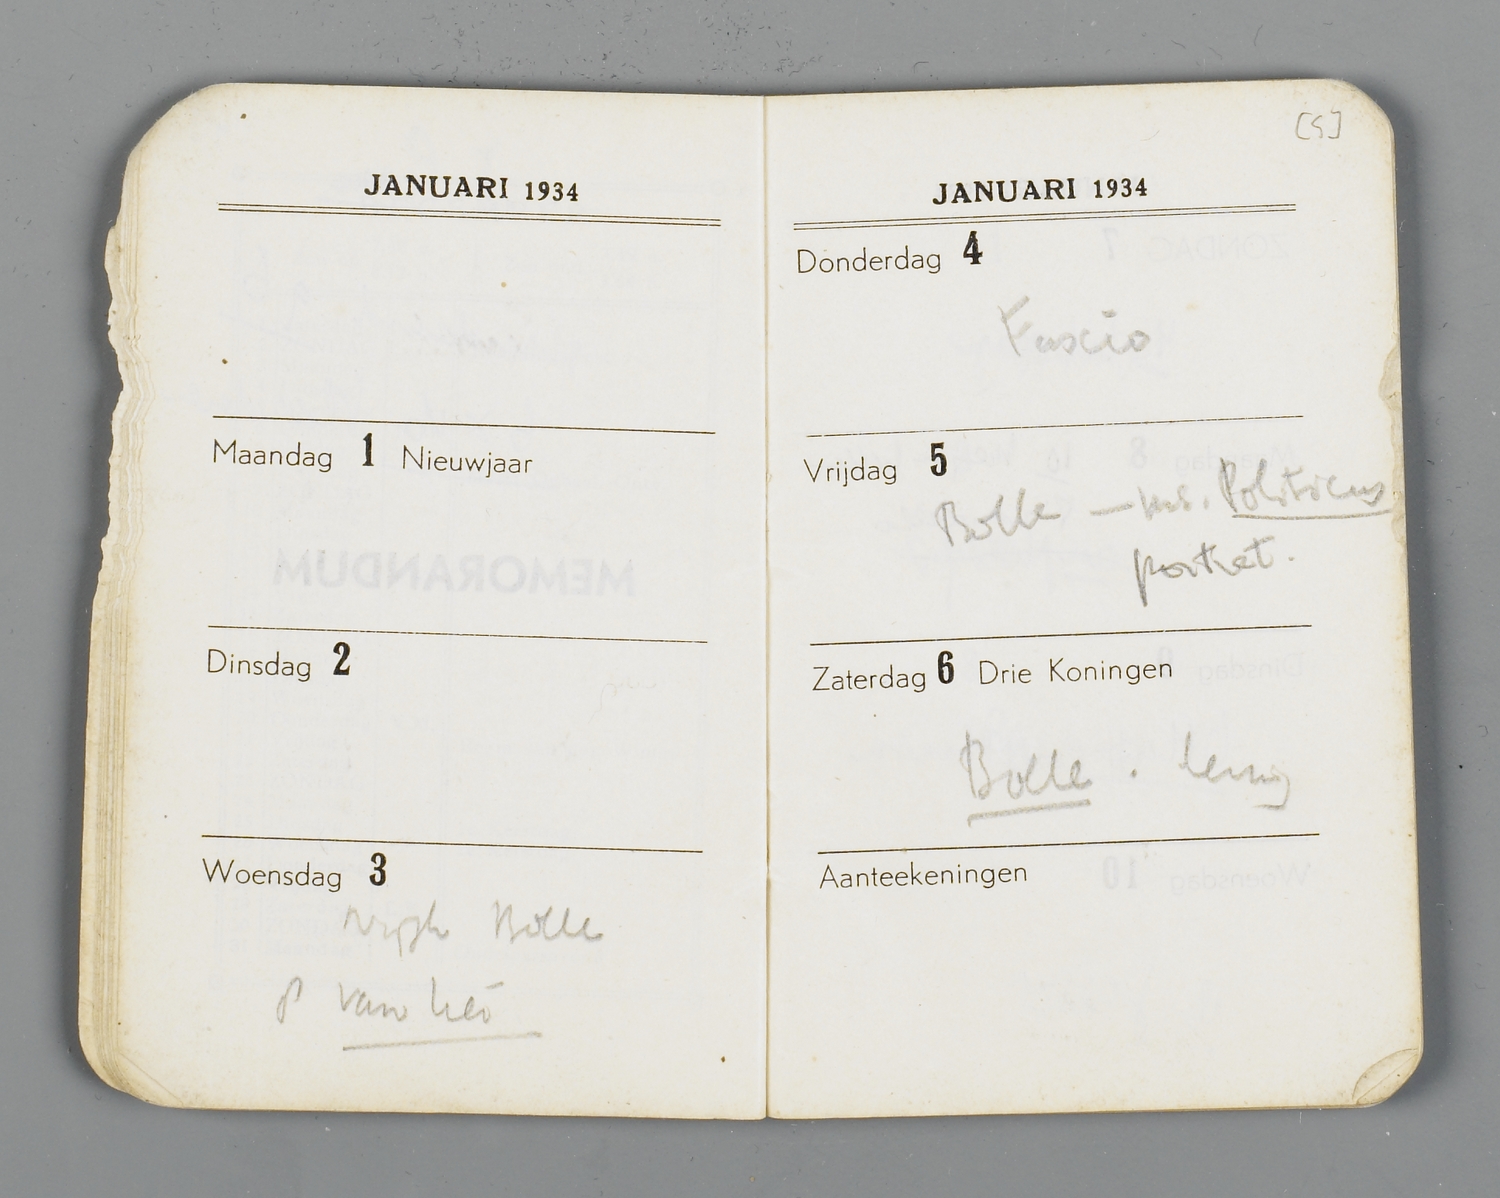 JANUARI 1934
Maandag 1 Nieuwjaar
Dinsdag 2
Woensdag 3
Nijgh Bolle
P van
[5]
JANUARI 1934
Donderdag 4
Fascio
Vrijdag 5
Bolle — ms. Politicus
portret.
Zaterdag 6 Drie Koningen
Bolle .
Aanteekeningen
MEMORANDUM